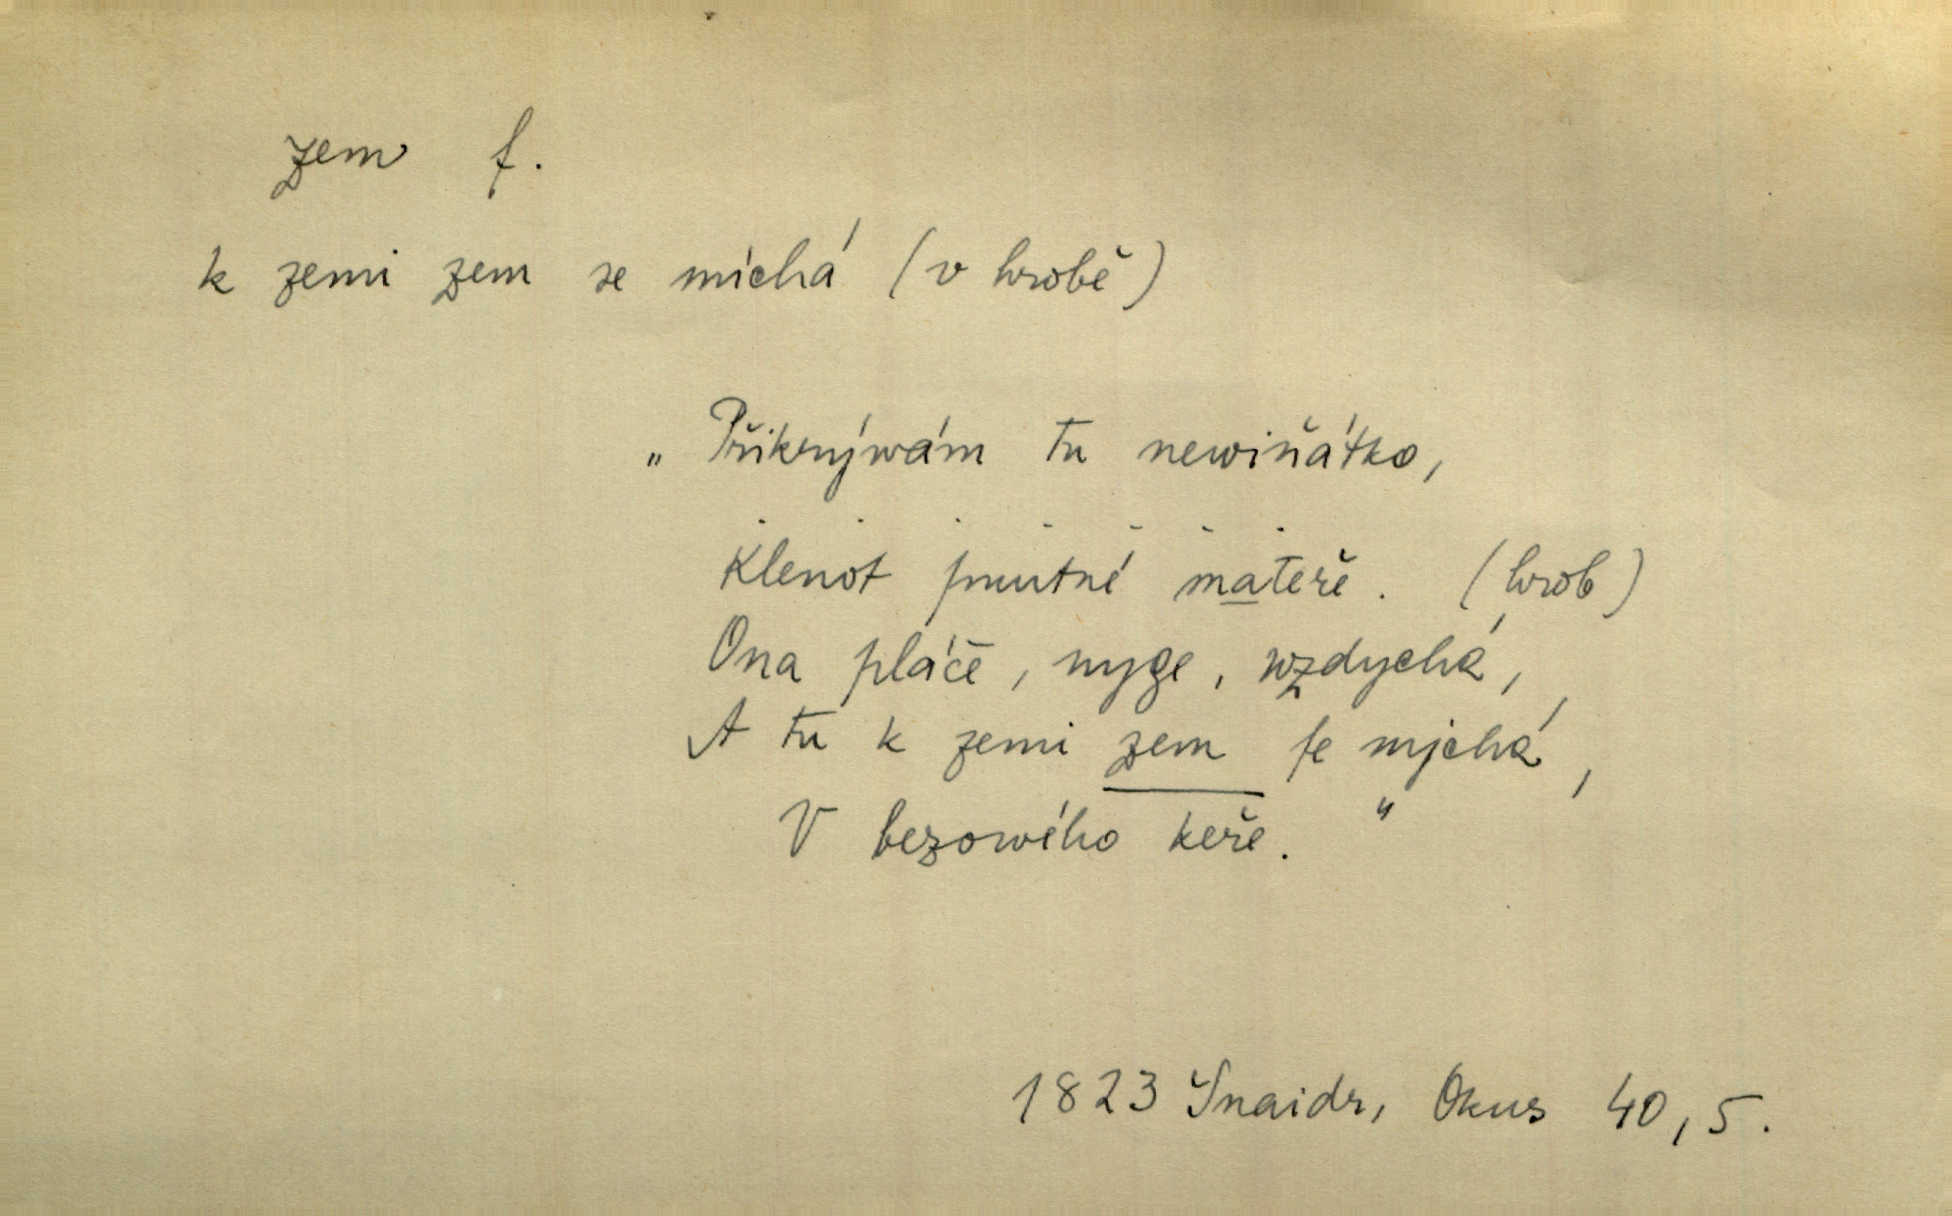 zem f.
k zemi zem se míchá (v hrobě)
„Přikrýwám tu newiňátko,
Klenot ſmutné mateře. (hrob)
Ona pláče, nyge, wzdychá,
A tu k zemi zem ſe mjchá,
V bezowého keře."
1823 Šnaidr, Okus 40, 5.